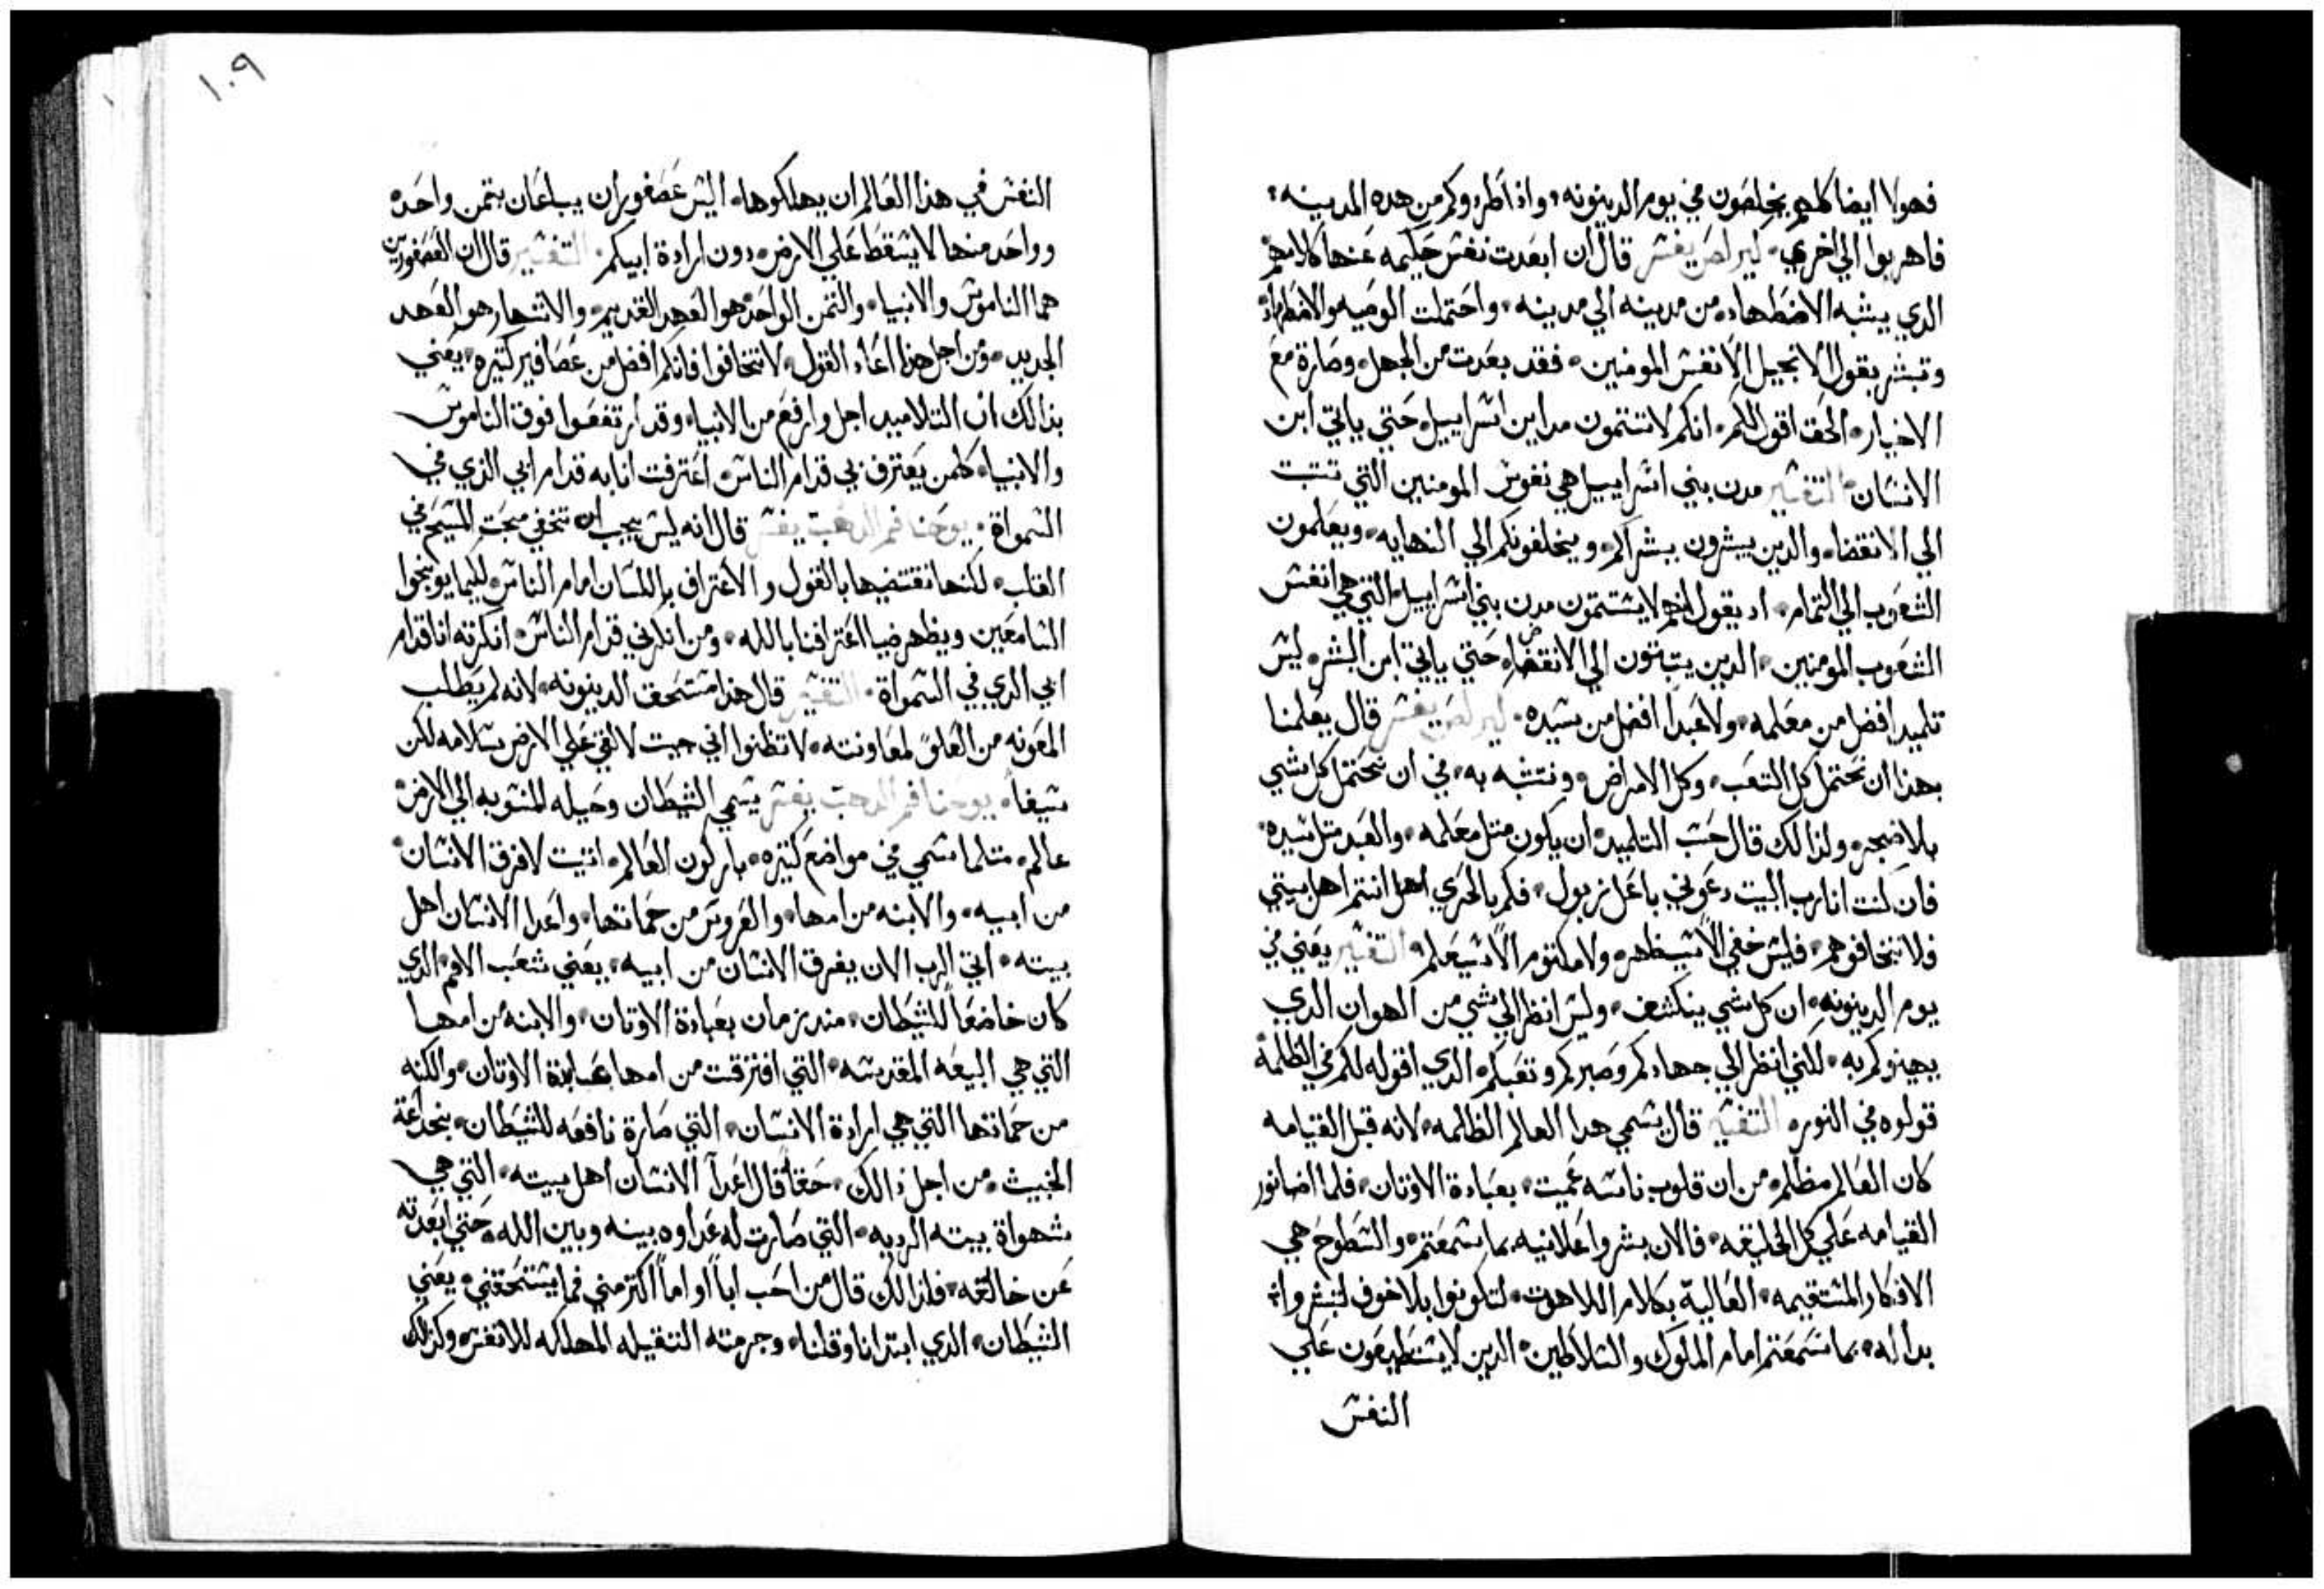 فهولا ايضا كلهم يخلصون في يوم الدينونه واذا طردوكم من هده المدينه
فاهربوا الي اخري كيرلص يفسر قال ان ابعدت نفس حكيمه عنها كلامهم
الدي يشبه الاضطهاد من مدينه الي مدينه واحتملت الوصيه والاضطهاد
وتبشر بقول الانجيل الانفس المومنين فقد بعدت من الجهل وصارة مع
الاخيار الحق اقول لكم انكم لا تتمون مداين اسراييل حتي ياتي ابن
الانسان التفسير مدن بني اسراييل هي نفوس المومنين التي تتبت
الي الانقضا والدين يبشرون ببشراكم ويخلفونكم الي النهايه ويعلمون
الشعوب الي التمام اد يقول انهم لا يستتمون مدن بني اسراييل التي هي انفس
الشعوب المومنين الدين يتبتون الي الانقضا حتي ياتي ابن البشر ليس
تلميد افضل من معلمه ولا عبدا افضل من سيده كيرلص يفسر قال يعلمنا
بهدا ان نحتمل كل التعب وكل الامراض ونتشبه به في ان نحتمل كل شي
بلا ضجر ولدالك قال حسب التلميد ان يكون متل معلمه والعبد متل سيده
فان كنت انا رب البيت دعوني باعل زبول فكم بالحري اهل انتم اهل بيتي
فلا تخافوهم فليس خفي الا سيظهر ولا مكتوم الا سيعلم التفسير يعني في
يوم الدينونه ان كل شي ينكشف وليس انظر الي شي من الهوان الدي
يهينوكم به لكني انظر الي جهادكم وصبركم وتعبكم الدي اقوله لكم في الظلمه
قولوه في النور التفسير قال يسمي هدا العالم الظالمه لانه قبل القيامه
كان العالم مظلم من ان قلوب ناسه عميت بعبادة الاوتان فلما اضا نور
القيامه علي كل الخليقه فالان بشروا علانيه بما سمعتم والسطوح هي
الافكار المستقيمه العاليه بكلام اللاهوت لتكونوا بلا خوف لتبشروا
بدا له بما سمعتم امام الملوك والسلاطين الدين لا يستطيعون علي
النفس
١٠٩
النفس في هدا العالم ان يهلكوها اليس عصفوران يباعان بتمن واحده
وواحد منها لا يسقط علي الارض دون ارادة ابيكم التفسير قال ان العصفورين
هما الناموس والانبياء والتمن الواحد هو العهد القديم والاتنحار هو العهد
الجديد ومن اجل هدا اعاد القول لا تخافوا فانكم افضل من عصافير كتيره يعني
بدالك ان التلاميد اجل وارفع من الانبياء وقد ارتفعوا فوق الناموس
والانبياء كلمن يعترف بي قدام الناس اعترفت انا به قدام ابي الدي في
السمواة يوحنا فم الدهب يفسر قال انه ليس يجب ان تخفي محبت المسيح في
القلب لكنها نقتضيها بالقول والاعتراف باللسان امام الناس لكيما يوبخوا
السامعين ويظهر ضيا اعترافنا بالله ومن انكرني قدام الناس انكرته انا قدام
ابي الدي في السمواة التفسير قال هدا مستحق الدينونه لانه لم يطلب
المعونه من العلو لمعاونته لا تظنوا اني جيت لالقي علي الارض سلامه لكن
سيفا يوحنا فم الدهب يفسر يسمي الشيطان وحيله المنسوبه الي الارض
عالم متلما سمي في مواضع كتيره باركون العالم اتيت لافرق الانسان
من ابيه والابنه من امها والعروس من حماتها واعدا الانسان اهل
بيته اتي الرب الان يفرق الانسان من ابيه يعني شعب الامم الدي
كان خاضعا للشيطان مند زمان بعبادة الاوتان والابنه من امها
التي هي البيعه المقدسه التي افترقت من امها عبادة الاوتان والكنه
من حماتها التي هي ارادة الانسان التي صارة نافعه للشيطان بخداعة
الخبيث من اجل دالك حقا قال اعدا الانسان اهل بيته التي هي
شهواة بيته الرديه التي صارت له عداوه بينه وبين الله حتي ابعدته
عن خالقه فلدالك قال من احب ابا او اما اكتر مني فما يستحقني يعني
الشيطان الدي ابتدانا وقلنا وجرمته التقيله المهلكه للانفس وكدلك